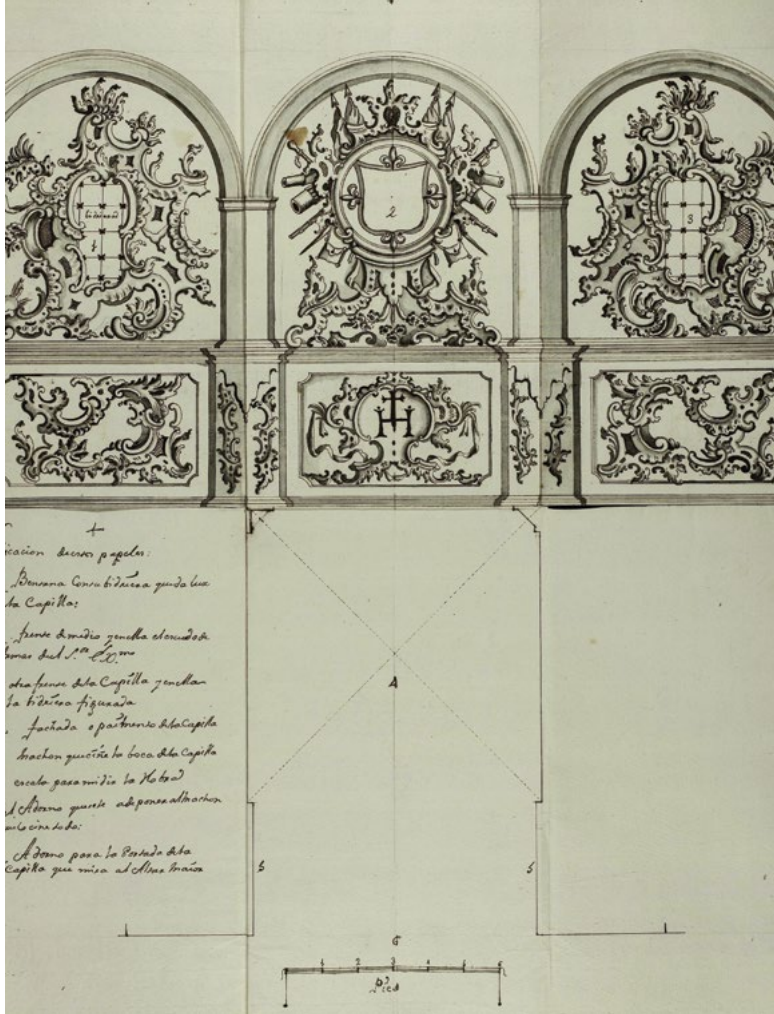 bidriera
1
2
3
IH
+
icacion destos papeles:
Bentana Con su bidriera que da luz
la Capilla:
frente de medio y en ella el escudo de
Armas del S.or Ex.mo
otra frente de la Capilla y en ella
la bidriera figurada
fachada o pavimento de la Capilla
Machon que ciñe la boca de la Capilla
escala para midir la Hobra
el Adorno que se a de poner al machon
Adorno para la Portada de la
Capilla que mira al Altar Maior
A
5
5
6
1 2 3 4 5 6
Pies